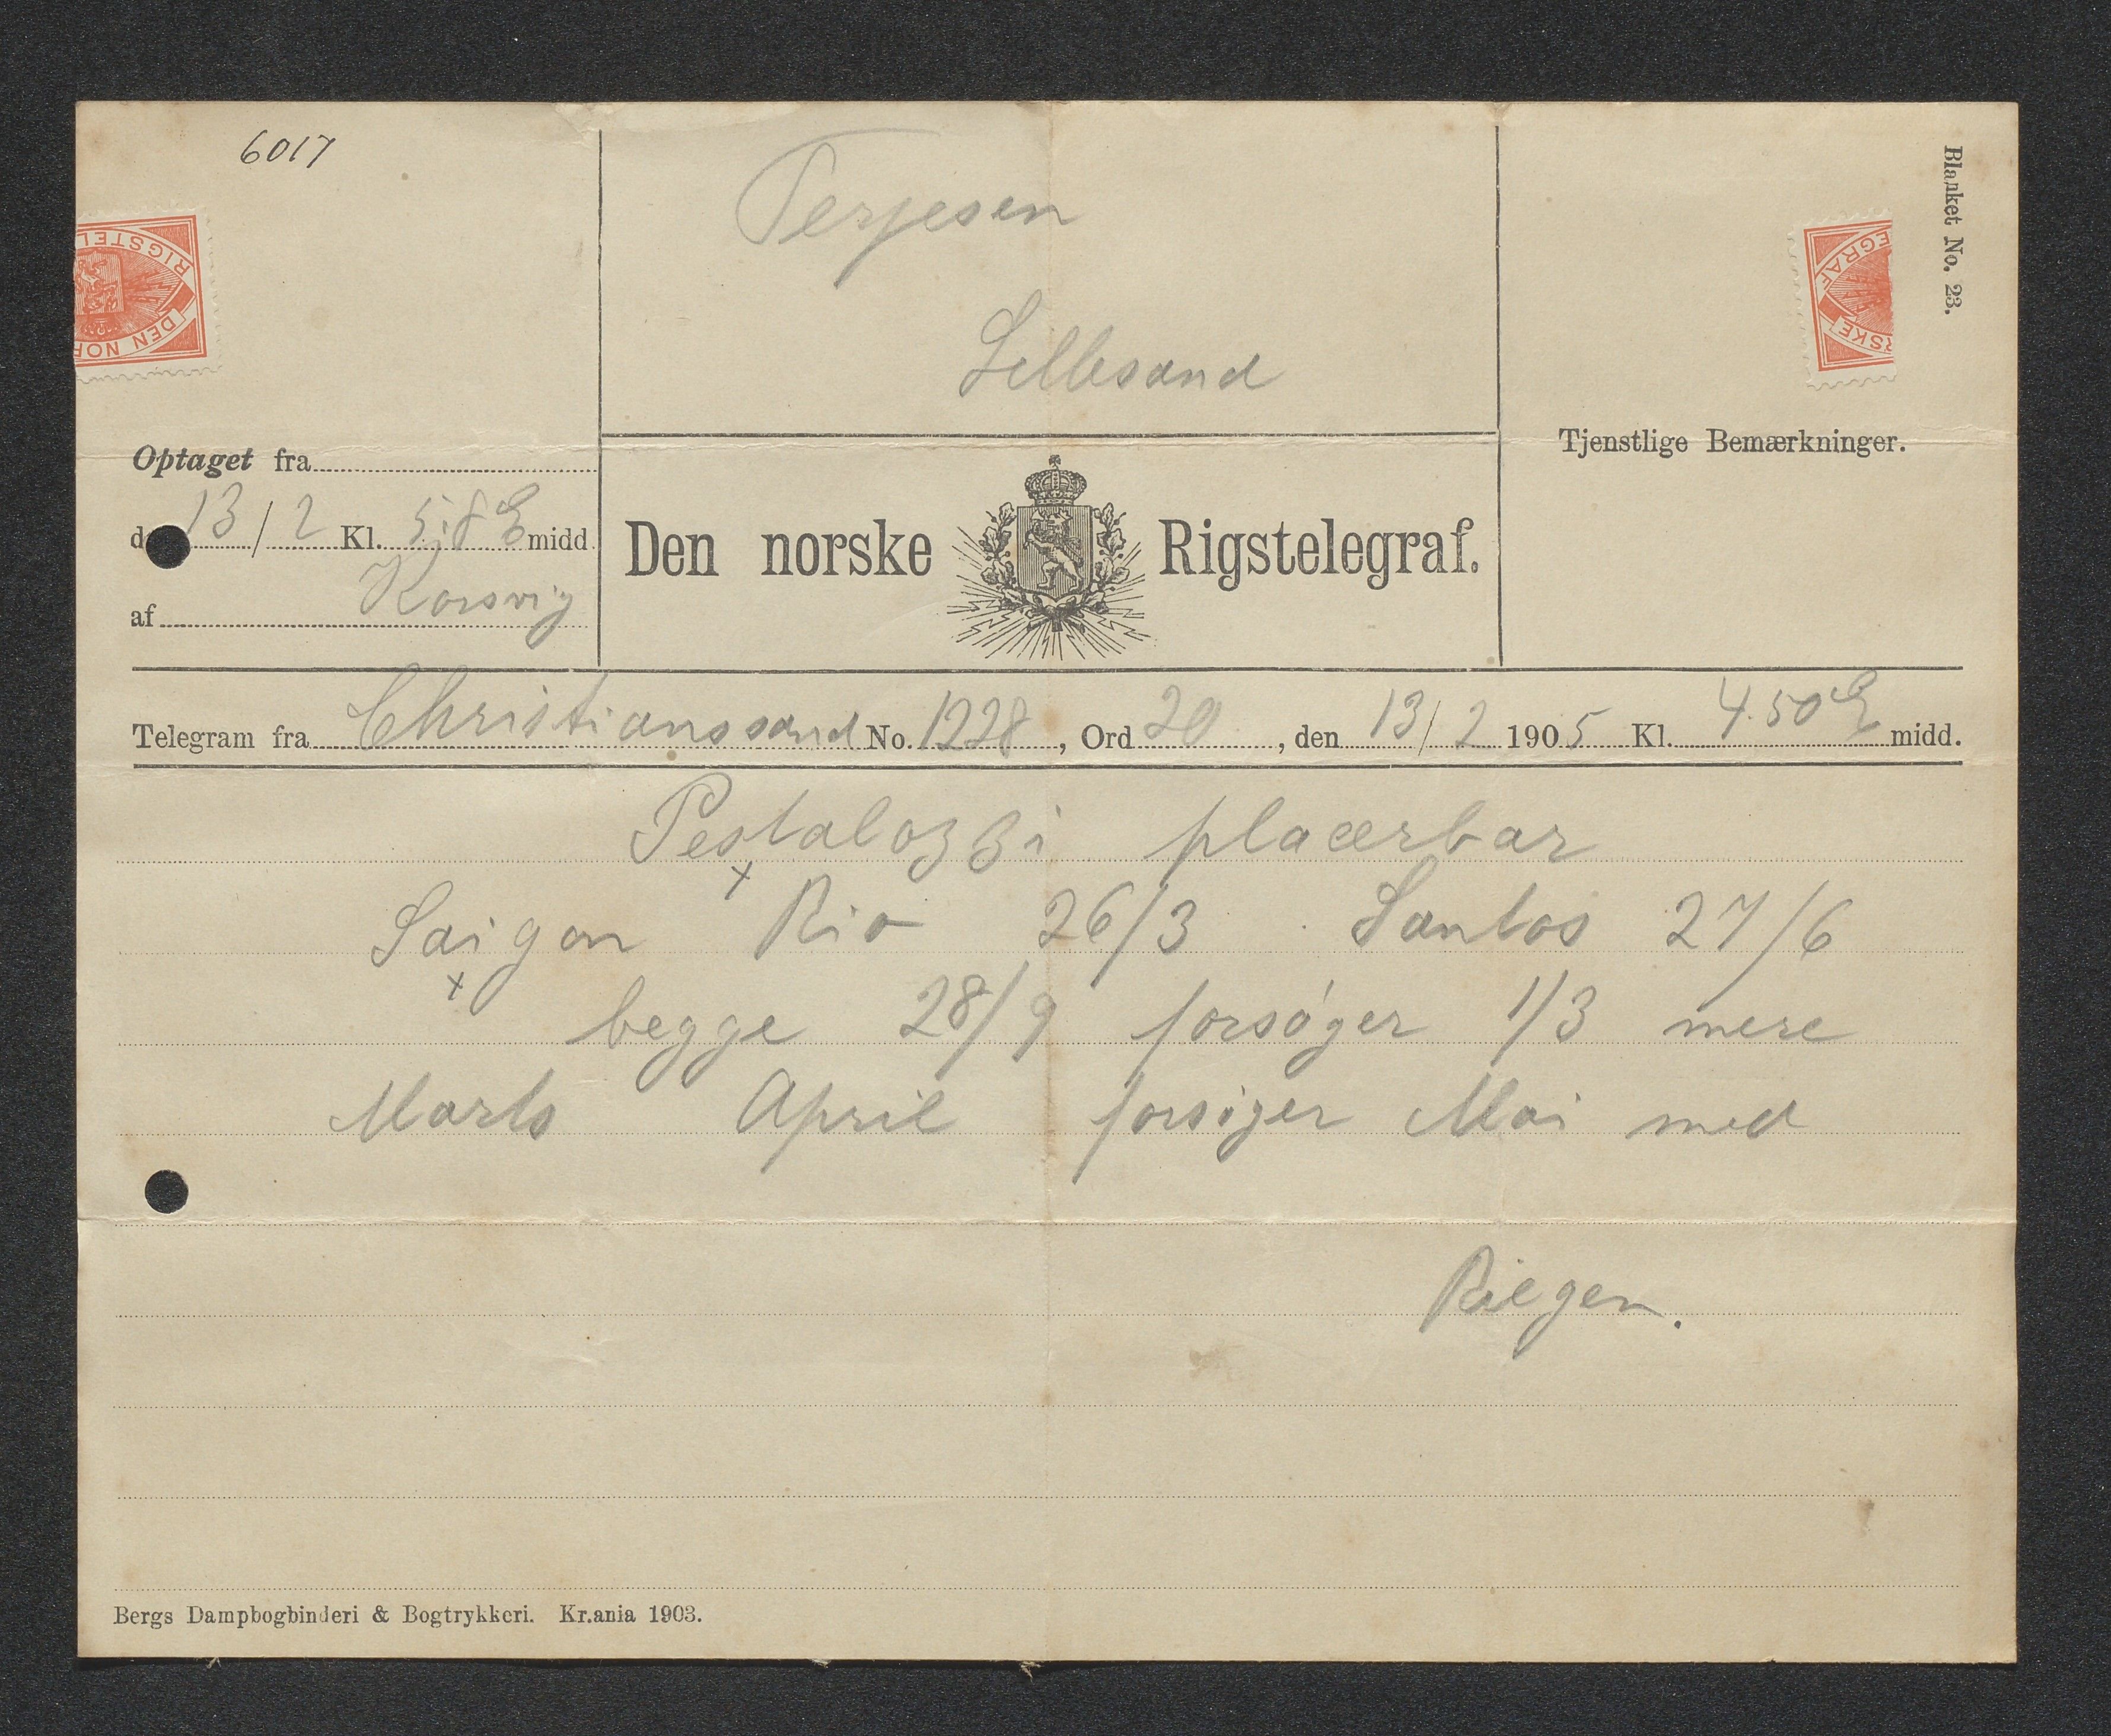 6017
Terjesen
Lillesand
Blanket No. 23.
RIGSTEL
DEN NOR
EGRAF
RSKE
Tjenstlige Bemærkninger.
Optaget fra
13/2 Kl. 5:8 E midd.
af Korsvig
Den norske Rigstelegraf.
Telegram fra Christianssand No. 1228, Ord 20, den 13/2 1905 Kl. 4.50 E midd.
Pestalozzi placerbar
Saigon Rio 26/3 Santos 27/6
begge 28/9 forsøger 1/3 mere
Marts April forsøger Mai med
Bergs Dampbogbinderi & Bogtrykkeri. Kr.ania 1903.